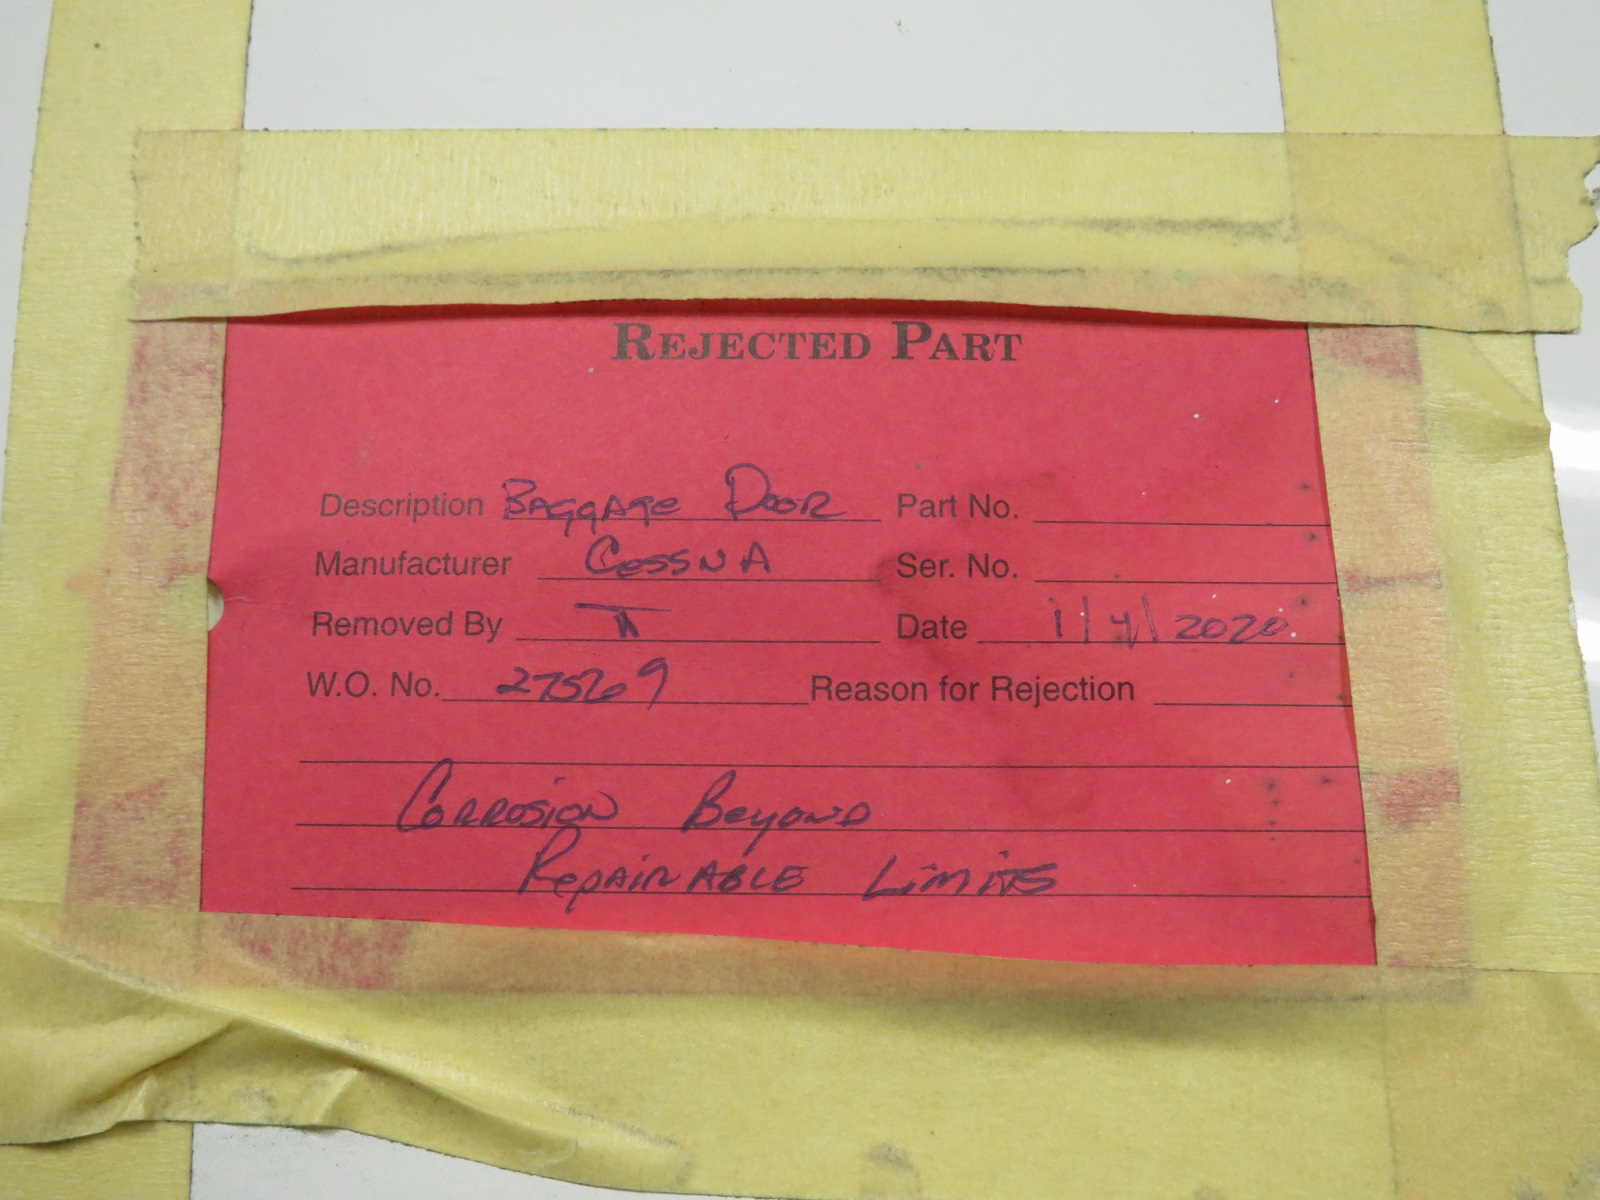 REJECTED PART
Description BAGGAGE DOOR Part No.
Manufacturer CESSNA Ser. No.
Removed By Date 1/4/2020
W.O. No. 27569 Reason for Rejection
CORROSION BEYOND
REPAIRABLE LIMITS